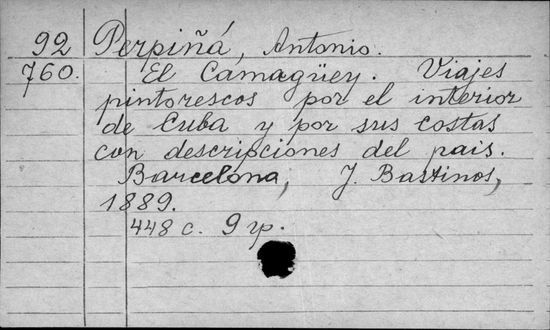 92 Perpiñá, Antonio.
760. El Camagüey. Viajes
pintorescos por el interior
de Cuba y por sus costas
con descripciones del pais.
Barcelona, J. Bastinos,
1889.
448 c. 9 p.